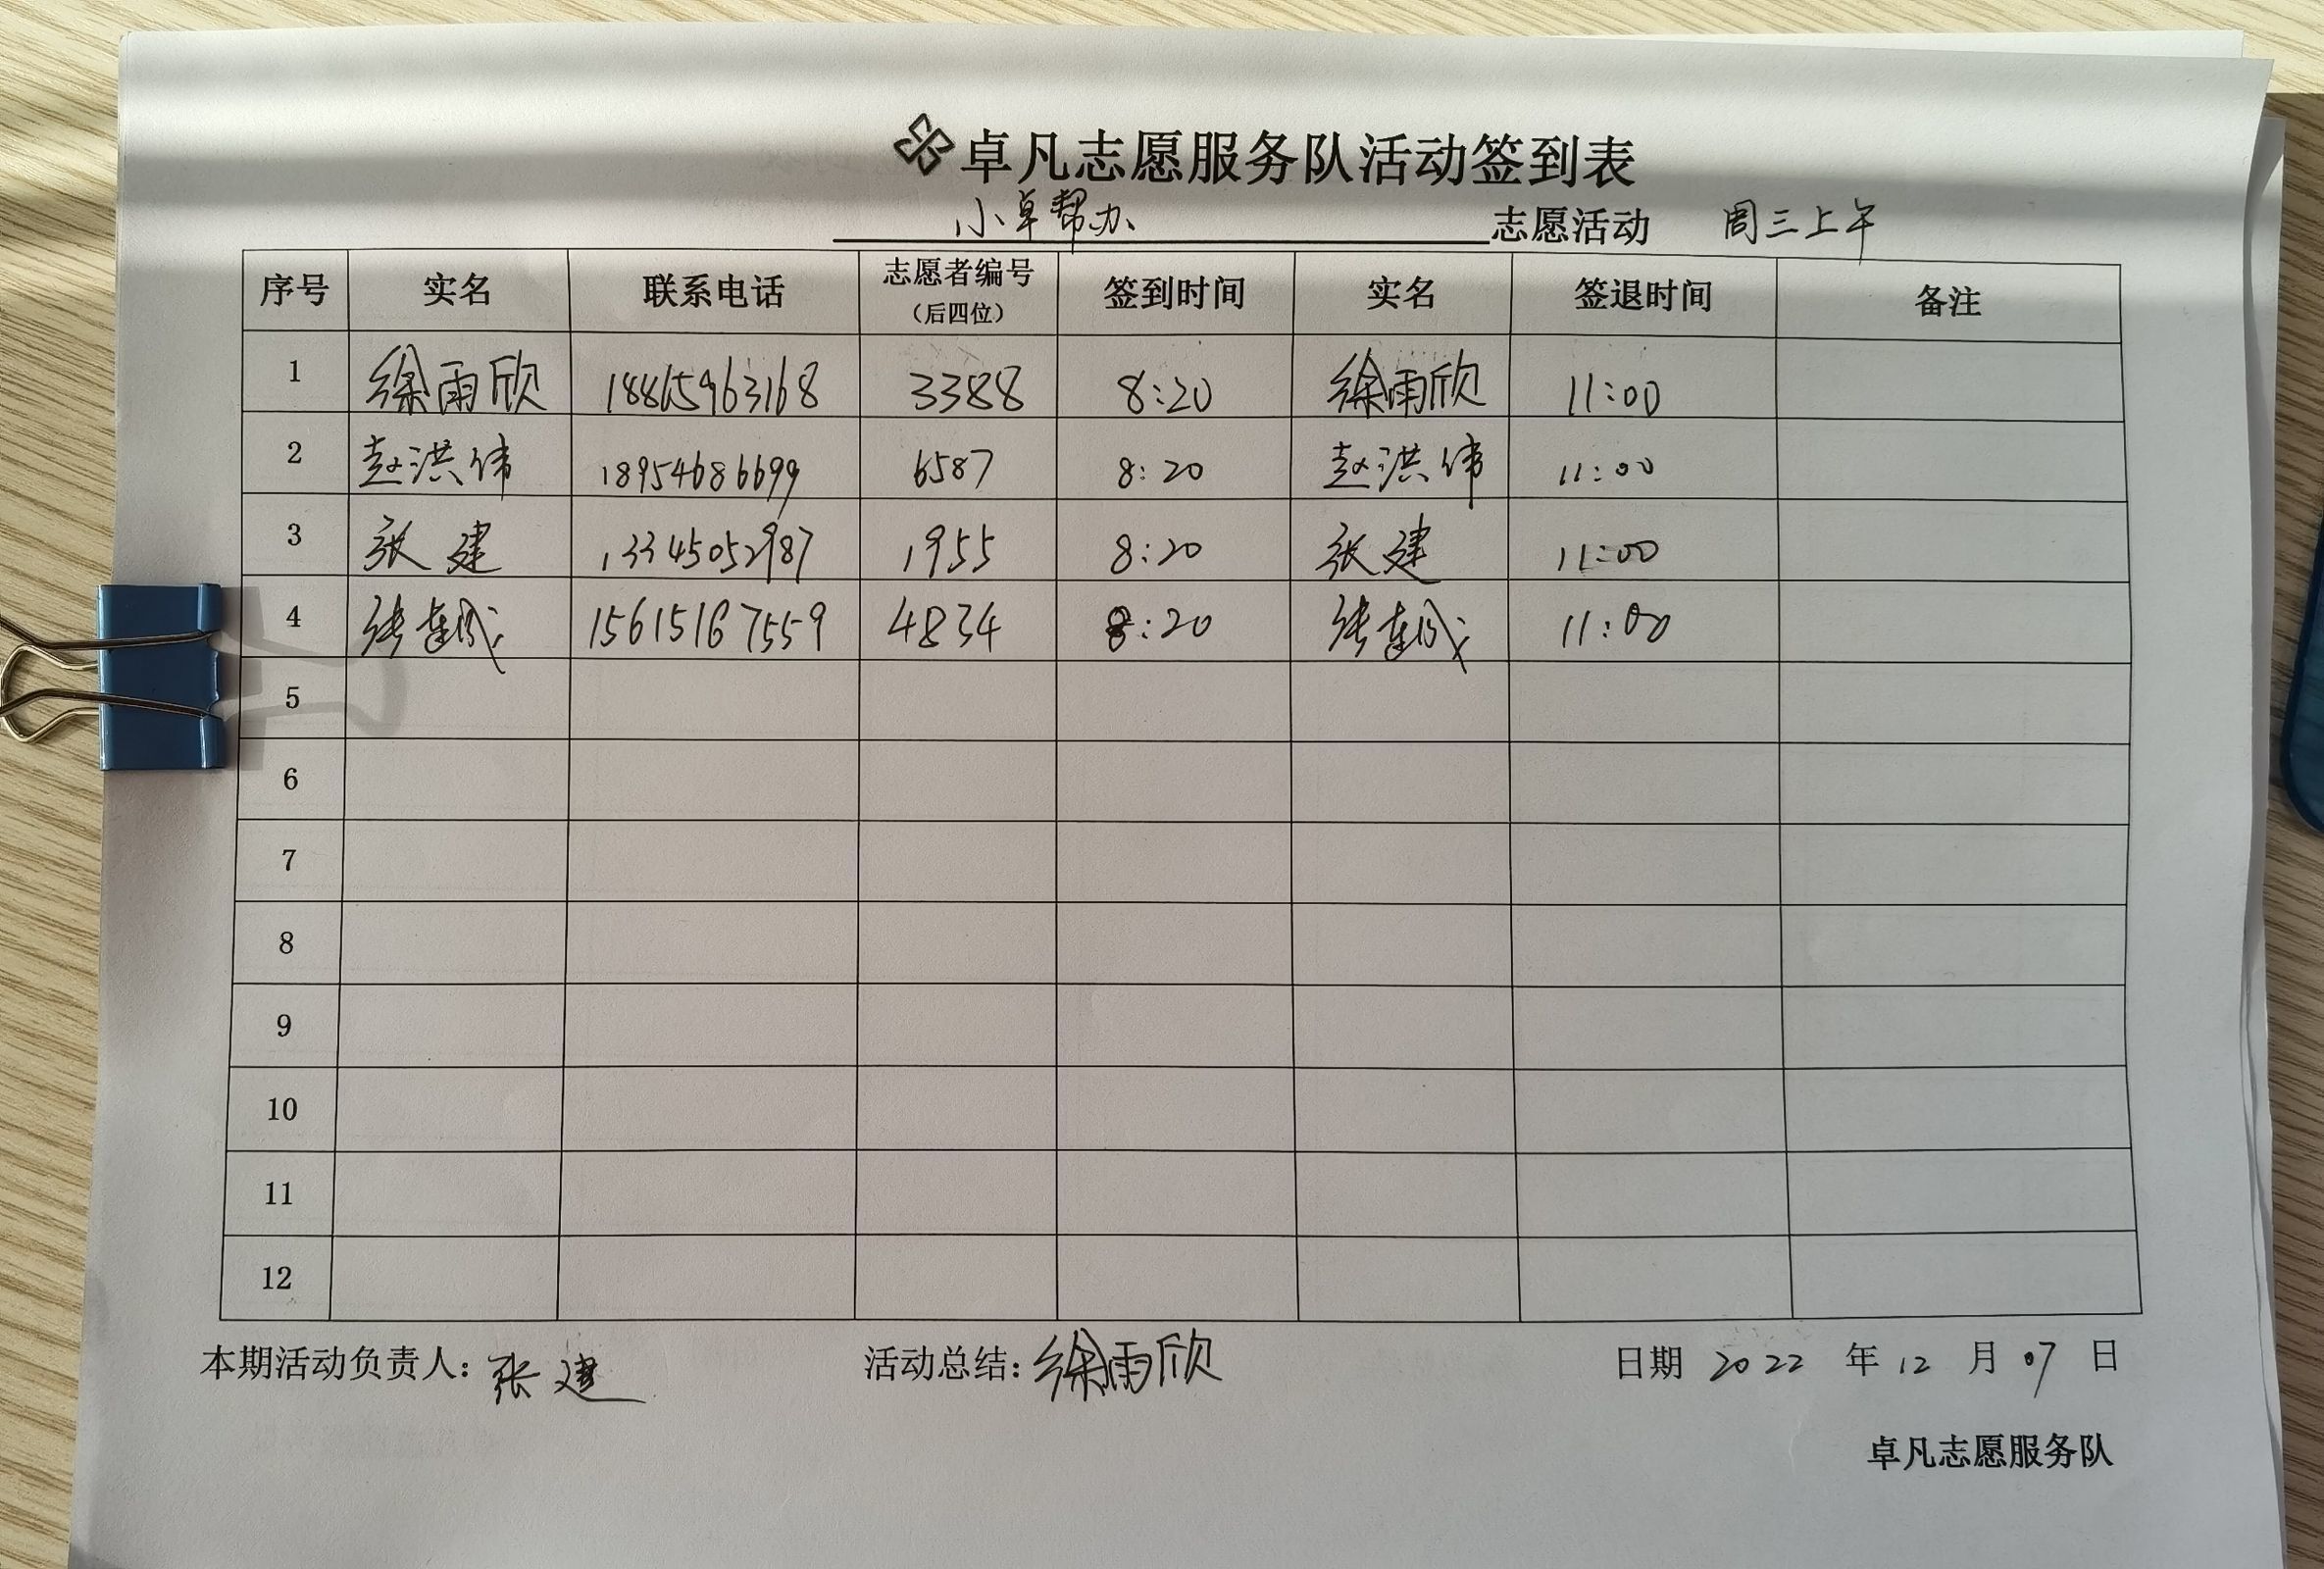 卓凡志愿服务队活动签到表
小卓帮办 志愿活动 周三上午
序号 实名 联系电话 志愿者编号（后四位） 签到时间 实名 签退时间 备注
1 徐雨欣 18815963168 3388 8:20 徐雨欣 11:00
2 赵洪伟 18954686699 6587 8:20 赵洪伟 11:00
3 张建 13345052987 1955 8:20 张建 11:00
4 15615167559 4834 8:20 11:00
5
6
7
8
9
10
11
12
本期活动负责人：张建 活动总结：徐雨欣 日期 2022 年 12 月 07 日
卓凡志愿服务队